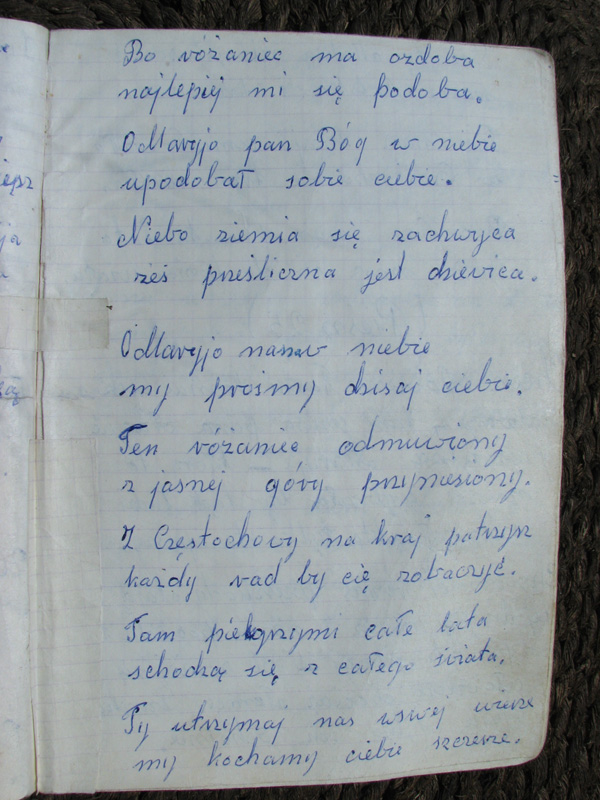 Bo różaniec ma ozdoba
najlepiej mi się podoba.
O Maryjo pan Bóg w niebie
upodobał sobie ciebie.
Niebo ziemia się zachwyca
żeś prześliczna jest dzievica.
O Maryjo nasza w niebie
my prośmy dzisaj ciebie.
Ten różaniec odmuwiony
z jasnej góry przyniesiony.
Z Częstochowy na kraj patrzysz
każdy rad by cię zobaczyć.
Tam pielgrzymi całe lata
schodzą się z całego śviata.
Ty utrzymaj nas wswej wierze
my kochamy ciebie szczerze.